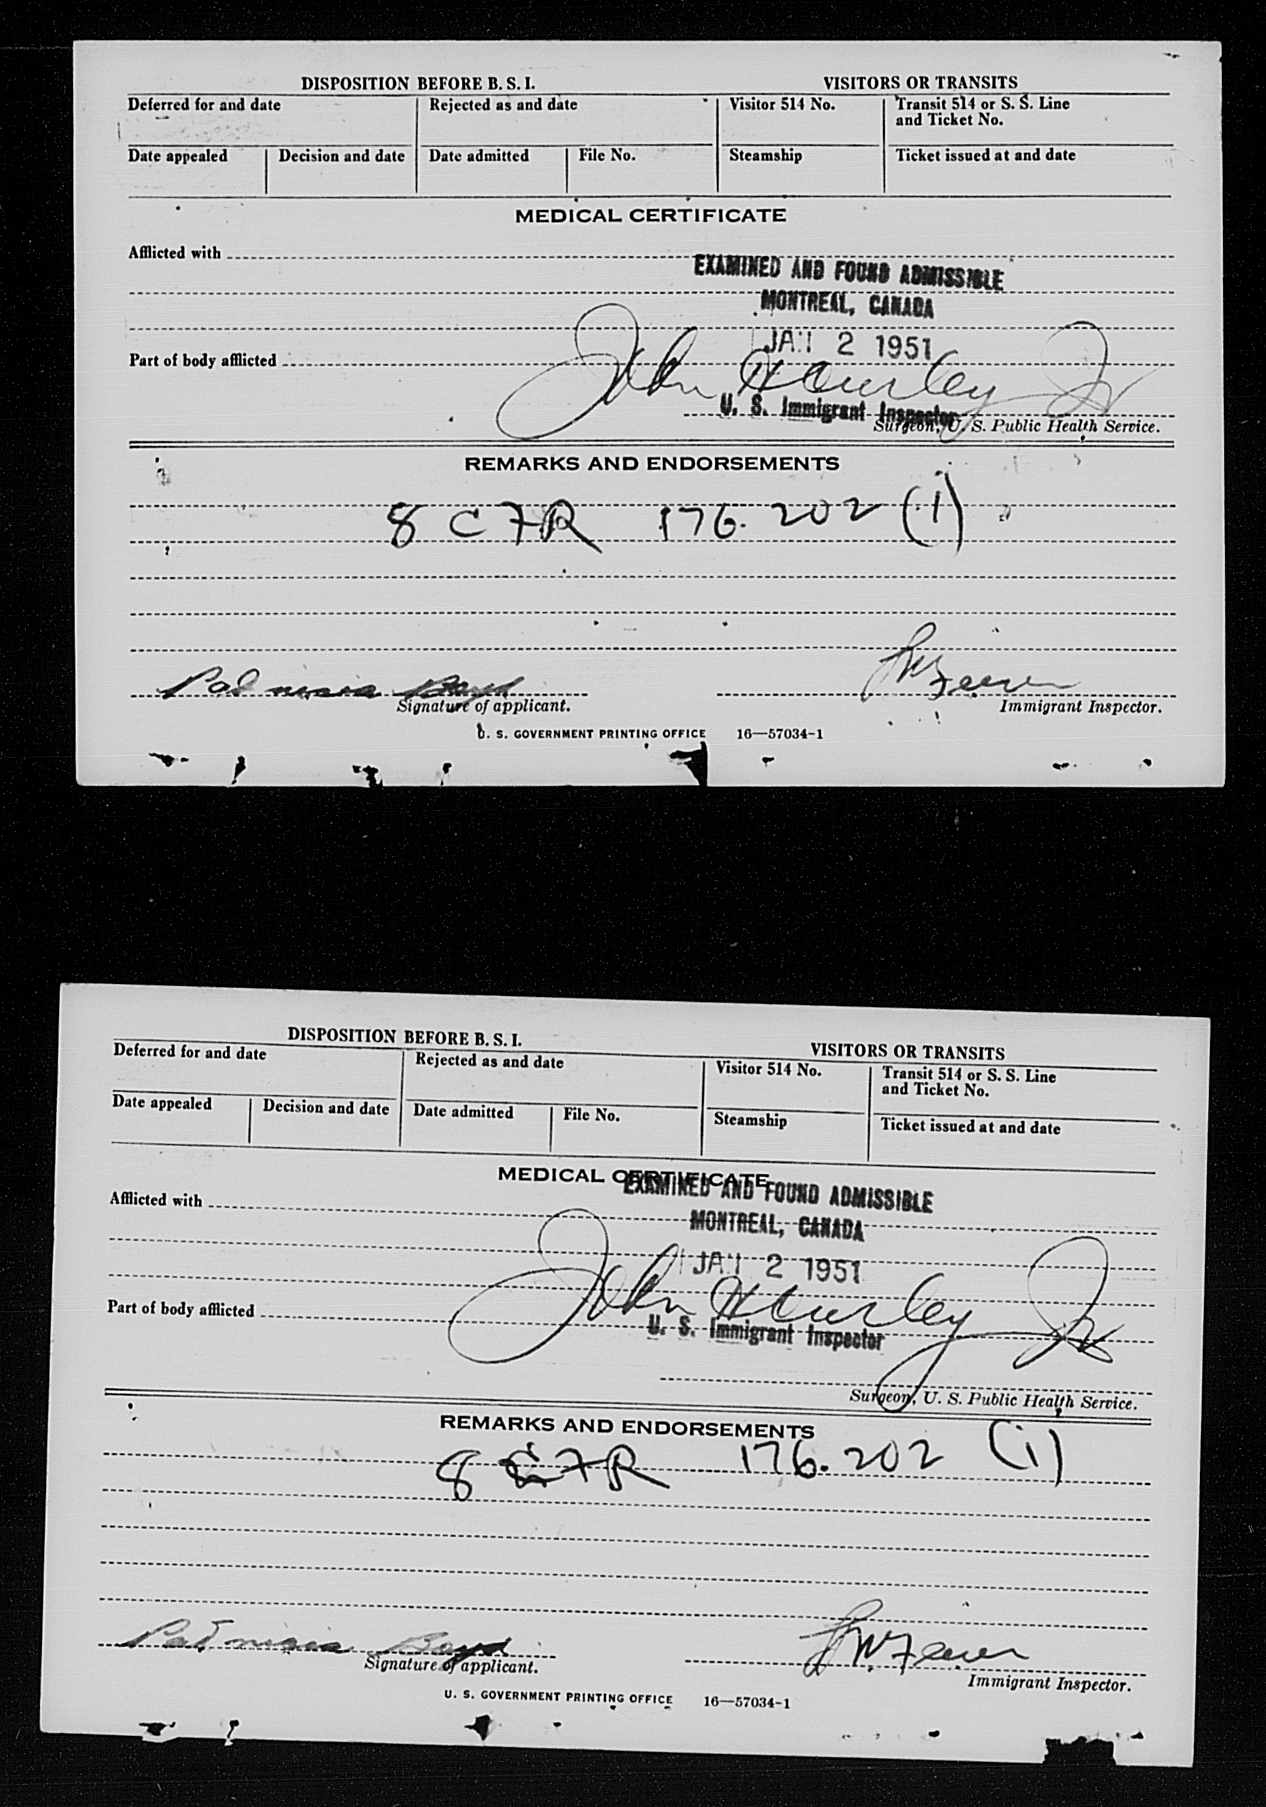 DISPOSITION BEFORE B. S. I.
VISITORS OR TRANSITS
Deferred for and date
Rejected as and date
Visitor 514 No.
Transit 514 or S. S. Line
and Ticket No.
Date appealed
Decision and date
Date admitted
File No.
Steamship
Ticket issued at and date
MEDICAL CERTIFICATE
Afflicted with
EXAMINED AND FOUND ADMISSIBLE
MONTREAL, CANADA
JAN 2 1951
Part of body afflicted
John Hurley Jr
U. S. Immigrant Inspector
Surgeon, U. S. Public Health Service.
REMARKS AND ENDORSEMENTS
8 CFR 176.202 (1)
Boyd
Signature of applicant.
Immigrant Inspector.
U. S. GOVERNMENT PRINTING OFFICE 16—57034-1
DISPOSITION BEFORE B. S. I.
VISITORS OR TRANSITS
Deferred for and date
Rejected as and date
Visitor 514 No.
Transit 514 or S. S. Line
and Ticket No.
Date appealed
Decision and date
Date admitted
File No.
Steamship
Ticket issued at and date
MEDICAL CERTIFICATE
Afflicted with
EXAMINED AND FOUND ADMISSIBLE
MONTREAL, CANADA
JAN 2 1951
Part of body afflicted
John Hurley Jr
U. S. Immigrant Inspector
Surgeon, U. S. Public Health Service.
REMARKS AND ENDORSEMENTS
8 CFR 176.202 (1)
Boyd
Signature of applicant.
Immigrant Inspector.
U. S. GOVERNMENT PRINTING OFFICE 16—57034-1